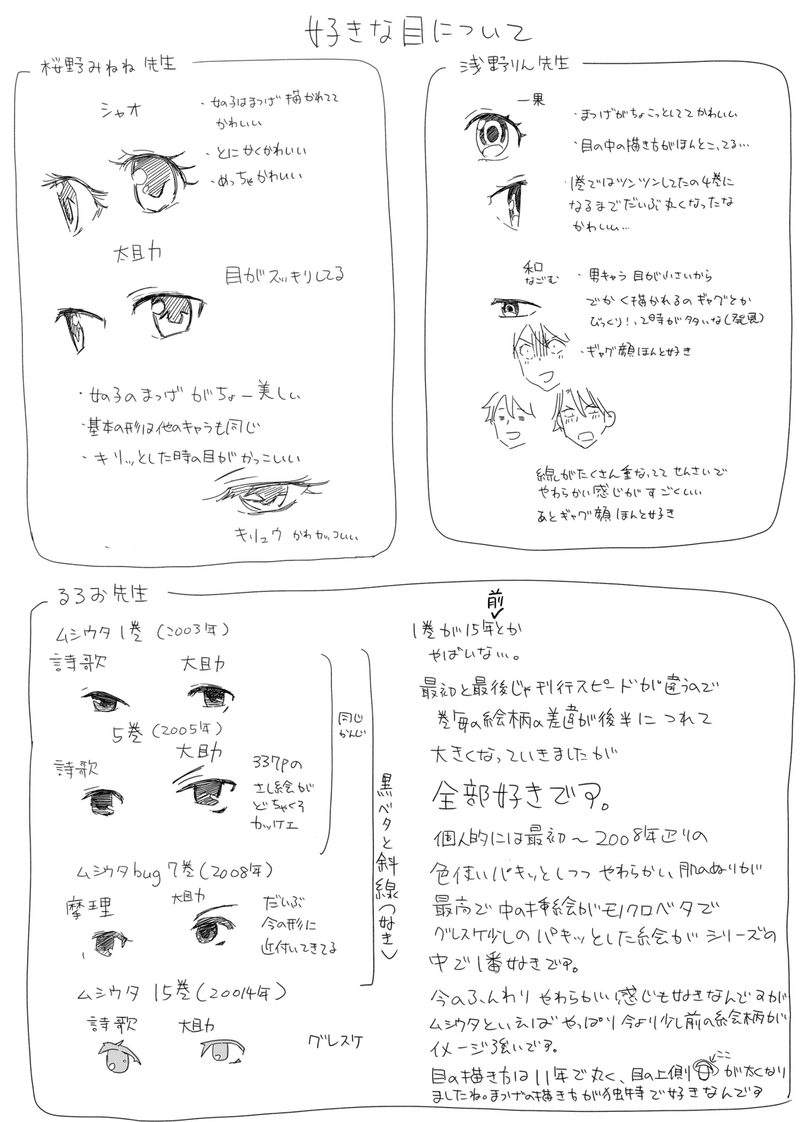 好きな目について
桜野みねね先生
シャオ
・女の子はまつげ描かれてて
かわいい
・とにかくかわいい
・めっちゃかわいい
太助
目がスッキリしてる
・女の子のまつげがちょー美しい
・基本の形は他のキャラも同じ
・キリッとした時の目がかっこいい
キリュウ かわカッコいい
浅野りん先生
一果
・まつげがちょこっとしててかわいい
・目の中の描き方がほんとこってる…
・1巻ではツンツンしてたの4巻に
なるまでだいぶ丸くなったな
かわいい…
和
なごむ
・男キャラ 目が小さいから
でかく描かれるのギャグとか
びっくり!って時が多いな(発見)
・ギャグ顔ほんと好き
線がたくさん重なってて せんさいで
やわらかい感じがすごくいい
あとギャグ顔ほんと好き
るろお先生
ムシウタ1巻(2003年)
詩歌 大助
5巻(2005年)
詩歌 大助
337Pの
さし絵が
どちゃくそ
カッケエ
同じ
かんじ
ムシウタbug7巻(2008年)
摩理 大助
だいぶ
今の形に
近付いてきてる
黒ベタと斜線つなぎ
ムシウタ 15巻(20014年)
詩歌 大助
グレスケ
前
1巻が15年とか
やばいな…。
最初と最後じゃ刊行スピードが違うので
巻毎の絵柄の差違が後半につれて
大きくなっていきましたが
全部好きです。
個人的には最初〜2008年辺りの
色使いパキッとしつつ やわらかい肌のぬりが
最高で 中の挿絵がモノクロベタで
グレスケ少しの パキッとした絵がシリーズの
中で1番好きです。
今のふんわり やわらかい感じも好きなんですが
ムシウタといえばやっぱり今より少し前の絵柄が
イメージ強いです。
ここ
目の描き方は11年で丸く、目の上側が太くなり
ましたね。まつげの描き方が独特で好きなんです